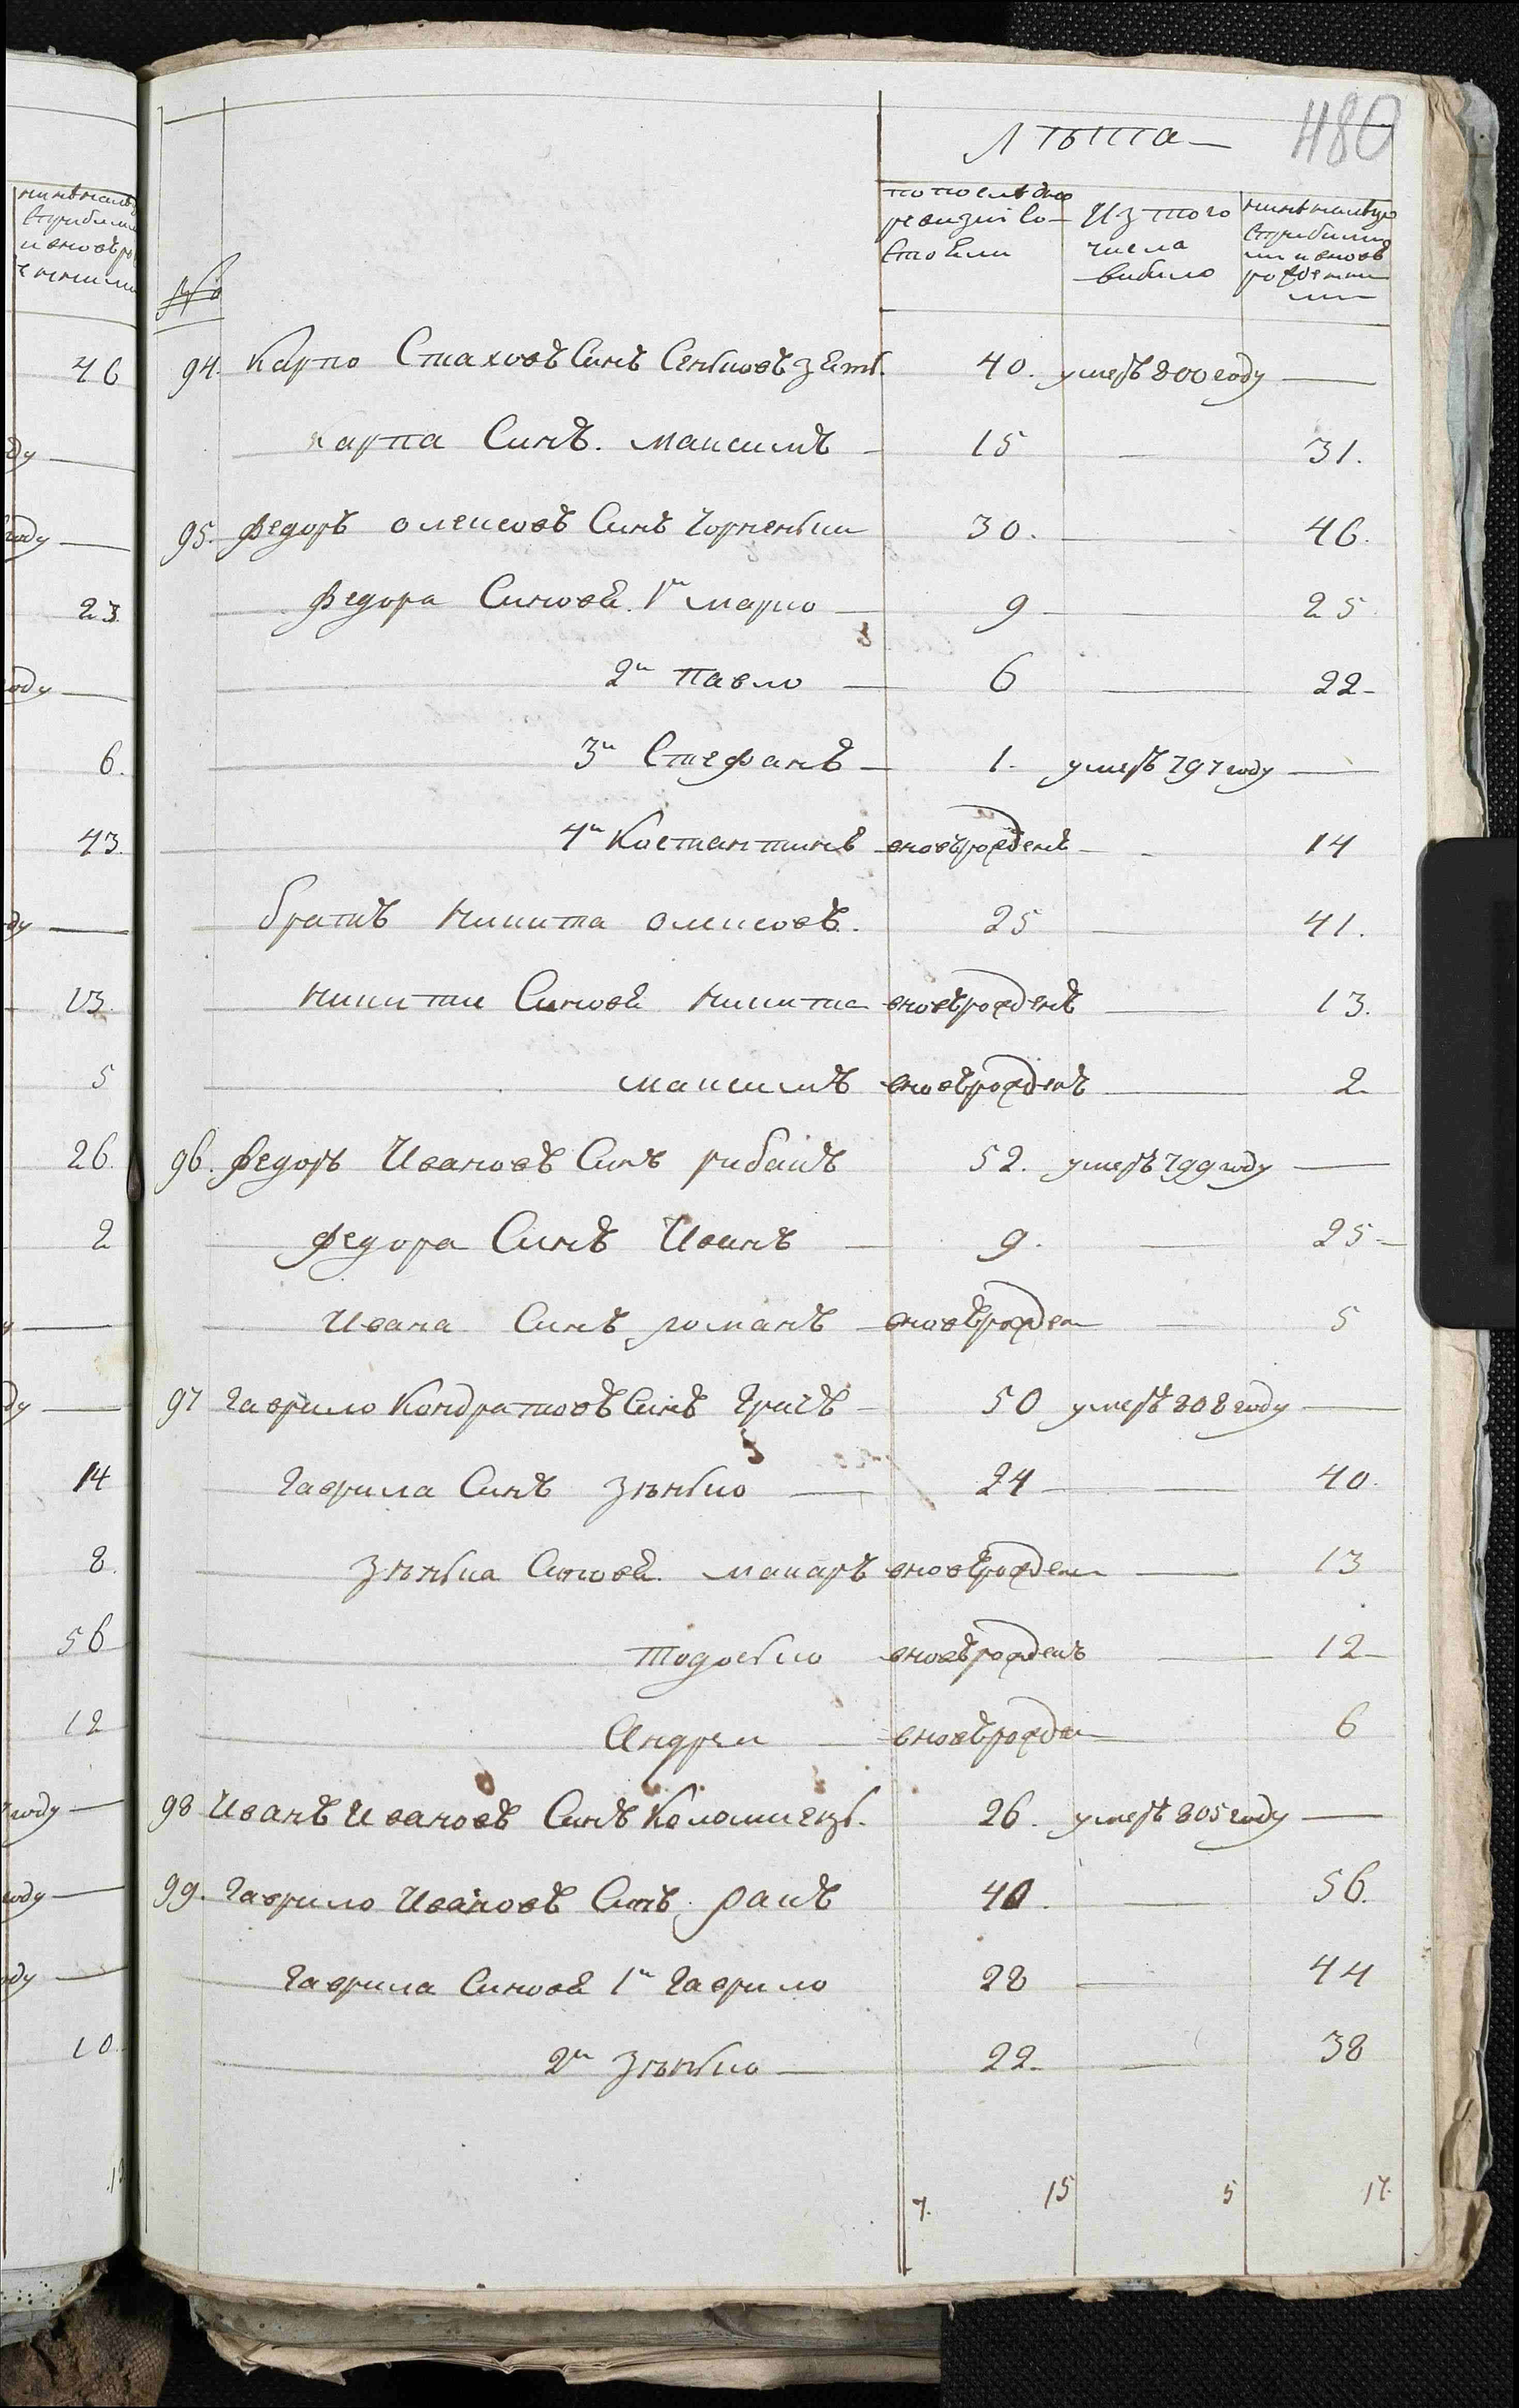 480
Лѣта
№
по последнеи ревизии состояли
Из того числа вибило
ныне налицо с прибилими и вновь рожденними
94. Карпо Стаховъ Синъ Сенковъ зять. 40. умеръ 800 году —
Карпа Синъ. Максимъ 15 — 31.
95. Федоръ олексовъ Синъ Чорненкии 30. — 46.
Федора Синовя. 1й марко — 9 — 25
2й Павло — 6 — 22
3й Стефанъ — 1. умеръ 797 году —
4й Костантинъ вновьрожденъ — 14
братъ никита олексовъ. 25 — 41.
никити Синовя никита вновьрожденъ — 13.
максимъ вновьрожденъ — 2
96. Федоръ Ивановъ Синъ рибакъ 52. умеръ 799 году —
Федора Синъ Иванъ — 9. — 25
Ивана Синъ романъ вновьрожден — 5
97 Гаврило Кондратовъ Синъ Грачъ 50 умеръ 808 году —
Гаврила Синъ зѣнько — 24 — 40.
Зѣнька Синовя. макаръ вновьрожден — 13
Тодоско вновьрожденъ — 12
Андреи вновьрожден — 6
98 Иванъ Ивановъ Синъ Коломиецъ. 26. умеръ 805 году —
99. Гаврило Ивановъ Синъ ракъ 40. — 56.
Гаврила Синовя 1й Гаврило 28 — 44
2й зѣнько — 22 — 38
7. 15 5 17.
46
23
6.
43
13.
5
26.
2
14
8.
56
12
10.